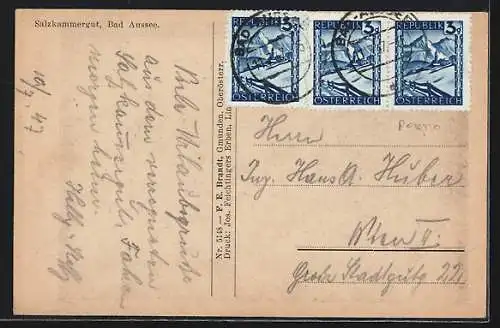 Salzkammergut, Bad Aussee.
10/7. 47
Urlaubsgrüße
aus dem verregneten
Salzkammergut. Fahre
morgen heim.
Nr. 5148 — F. E. Brandt, Gmunden, Oberösterr.
Druck: Jos. Feichtingers Erben, Lin
REPUBLIK 3g
ÖSTERREICH
REPUBLIK 3g
ÖSTERREICH
REPUBLIK 3g
ÖSTERREICH
BAD
Herrn
Ing. Hans A. Huber
Wien II.
Große Stadtgutg 22